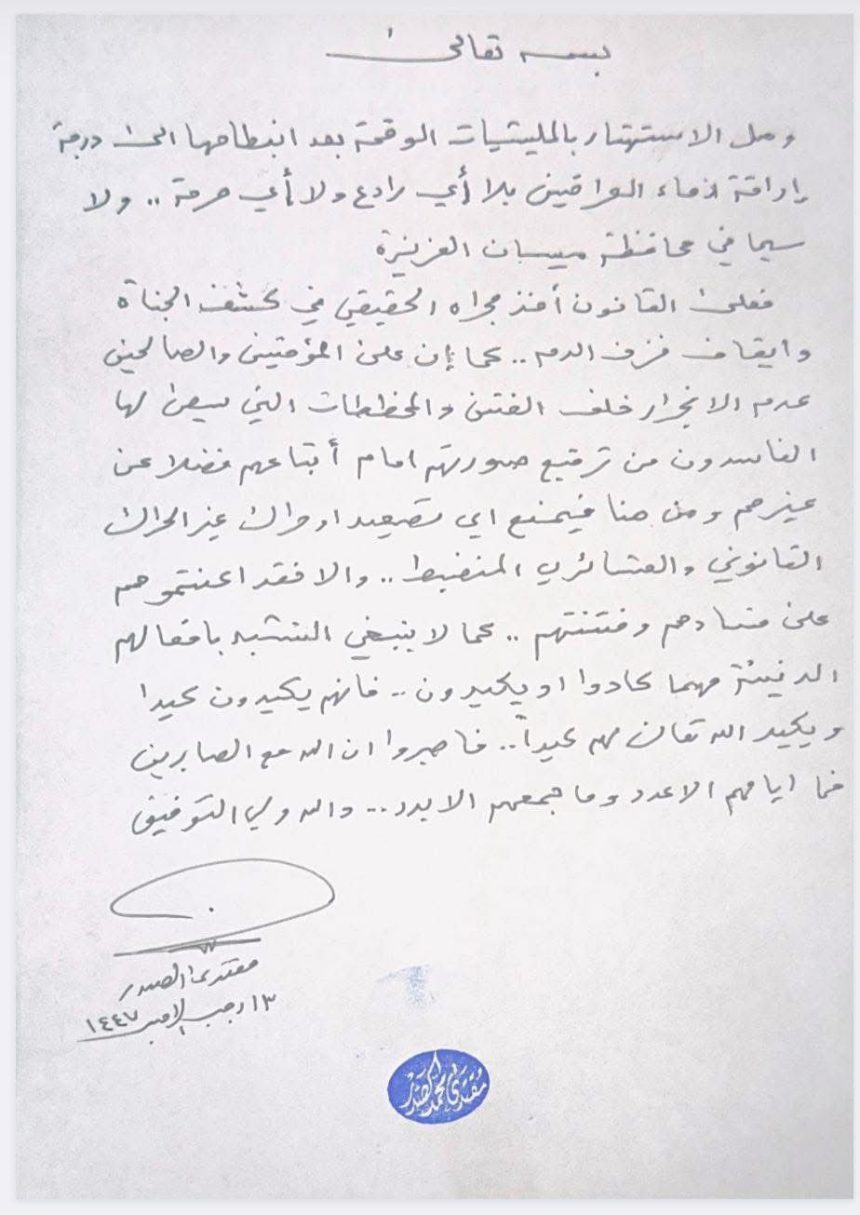 بسمه تعالى
وصل الاستهتار بالمليشيات الوقحة بعد انبطاحها الى درجة
إراقة دماء العراقيين بلا أي رادع ولا أي حرمة .. ولا
سيما في محافظة ميسان العزيزة
فعلى القانون أخذ مجراه الحقيقي في كشف الجناة
وايقاف نزف الدم .. كما إن على المؤمنين والصالحين
عدم الانجرار خلف الفتن والمخططات التي يسعى لها
الفاسدون من ترقيع صورتهم امام أتباعهم فضلا عن
غيرهم ومن هنا فيمنع اي تصعيد او حراك غير الحراك
القانوني والعشائري المنضبط .. والا فقد اعنتموهم
على فسادهم وفتنتهم .. كما لا ينبغي التشبه بافعالهم
الدنيئة مهما كادوا او يكيدون .. فانهم يكيدون كيدا
ويكيد الله تعالى لهم كيداً .. فاصبروا ان الله مع الصابرين
فما ايامهم الا عدد وما جمعهم الا بدد ... والله ولي التوفيق
مقتدى الصدر
١٣ رجب الاصب ١٤٤٧
مقتدى محمد الصدر